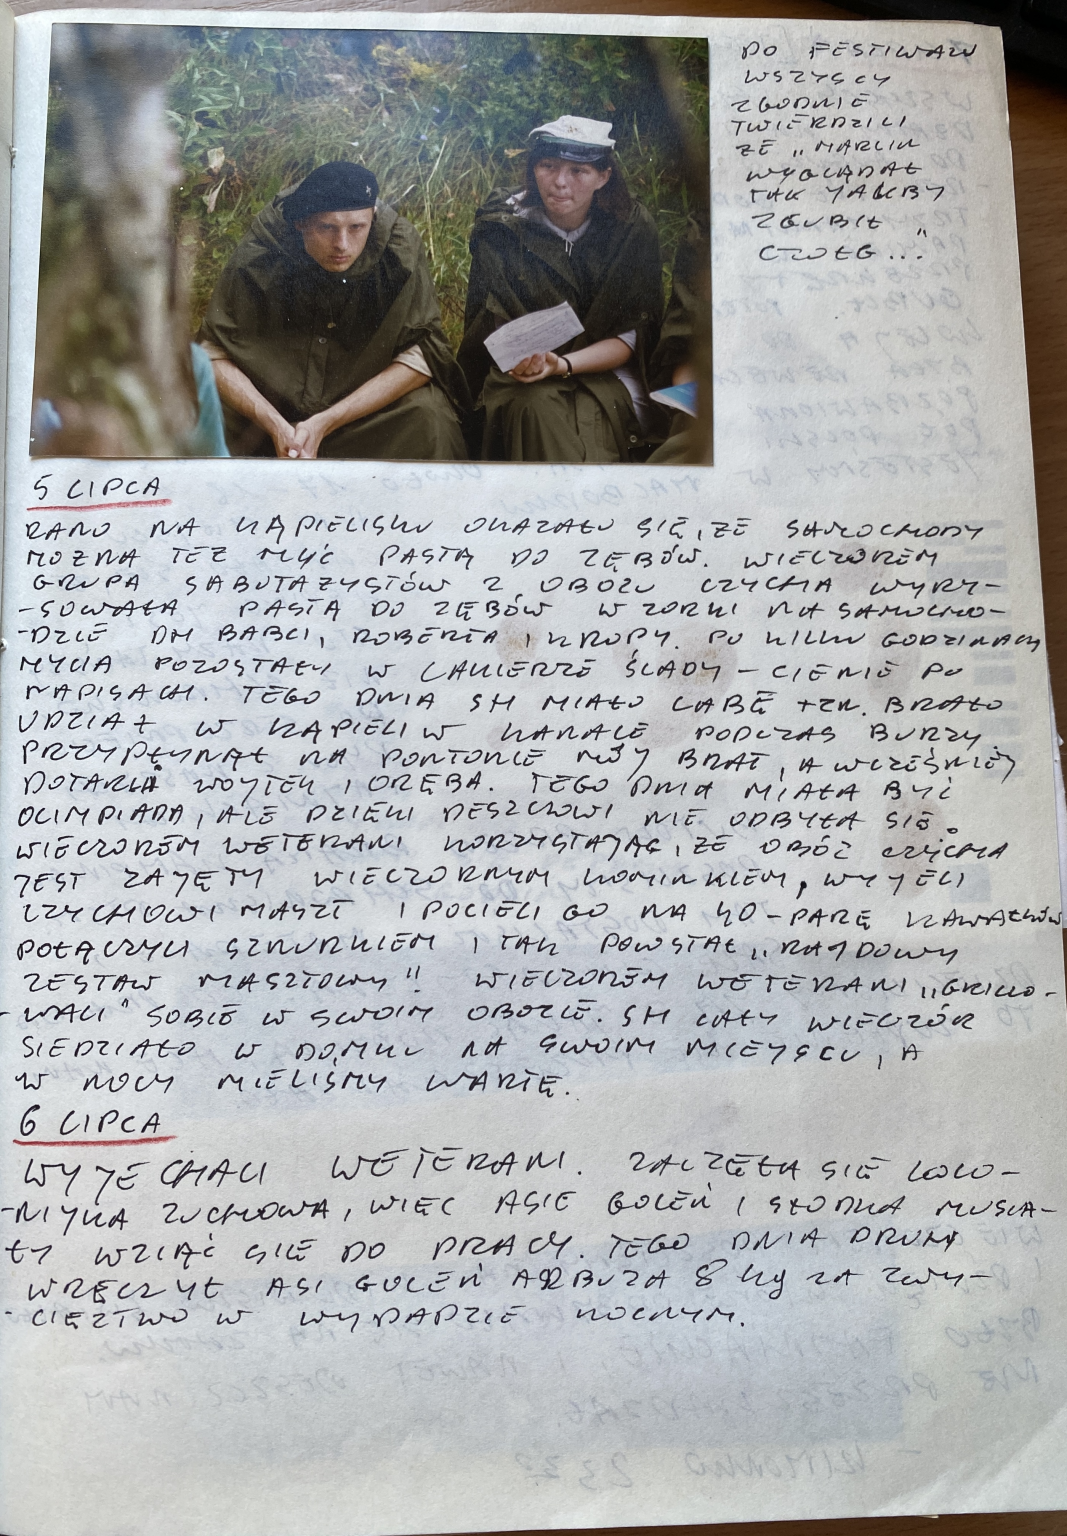 DO FESTIWALU
WSZYSCY
ZGODNIE
TWIERDZILI
ZE „MARCIN
WYGLĄDAŁ
TAK JAKBY
ZGUBIŁ
CZOŁG..."
5 LIPCA
RANO NA KĄPIELISKU OKAZAŁO SIĘ, ZE SAMOCHODY
MOZNA TEZ MYĆ PASTĄ DO ZĘBÓW. WIECZOREM
GRUPA SABOTAZYSTÓW Z OBOZU CZYCHA WYRY-
-SOWAŁA PASTĄ DO ZĘBÓW WZORKI NA SAMOCHO-
-DZIE DH BABCI, ROBERTA I KROPY. PO KILKU GODZINACH
MYCIA POZOSTAŁY W LAKIERZE ŚLADY - CIENIE PO
NAPISACH. TEGO DNIA SH MIAŁO LABĘ TZN. BRAŁO
UDZIAŁ W KĄPIELI W KANALE PODCZAS BURZY
PRZYPŁYNĄŁ NA PONTONIE MÓJ BRAT, A WCZEŚNIEJ
DOTARLI WOJTEK I ORĘBA. TEGO DNIA MIAŁA BYĆ
OLIMPIADA, ALE DZIĘKI DESZCZOWI NIE ODBYŁA SIĘ.
WIECZOREM WETERANI KORZYSTAJĄC, ZE OBÓZ CZYCHA
JEST ZAJĘTY WIECZORNYM KOMINKIEM, WYJĘLI
CZYCHOWI MASZT I POCIELI GO NA 40-PARĘ KAWAŁKÓW
POŁĄCZYLI SZNURKIEM I TAK POWSTAŁ „RAJDOWY
ZESTAW MASZTOWY"! WIECZOREM WETERANI „GRILLO-
-WALI" SOBIE W SWOIM OBOZIE. SH CAŁY WIECZÓR
SIEDZIAŁO W DOMKU NA SWOIM MIEJSCU, A
W NOCY MIELIŚMY WARTĘ.
6 LIPCA
WYJECHALI WETERANI. ZACZĘŁA SIĘ KOLO-
-NIJKA ZUCHOWA, WIĘC ASIE GOLEŃ I SŁODKA MUSIA-
ŁY WZIĄĆ SIĘ DO PRACY. TEGO DNIA DRUHY
WRĘCZYŁ ASI GOLEŃ ARBUZA 8 kg ZA ZWY-
-CIĘZTWO W WYPADZIE NOCNYM.